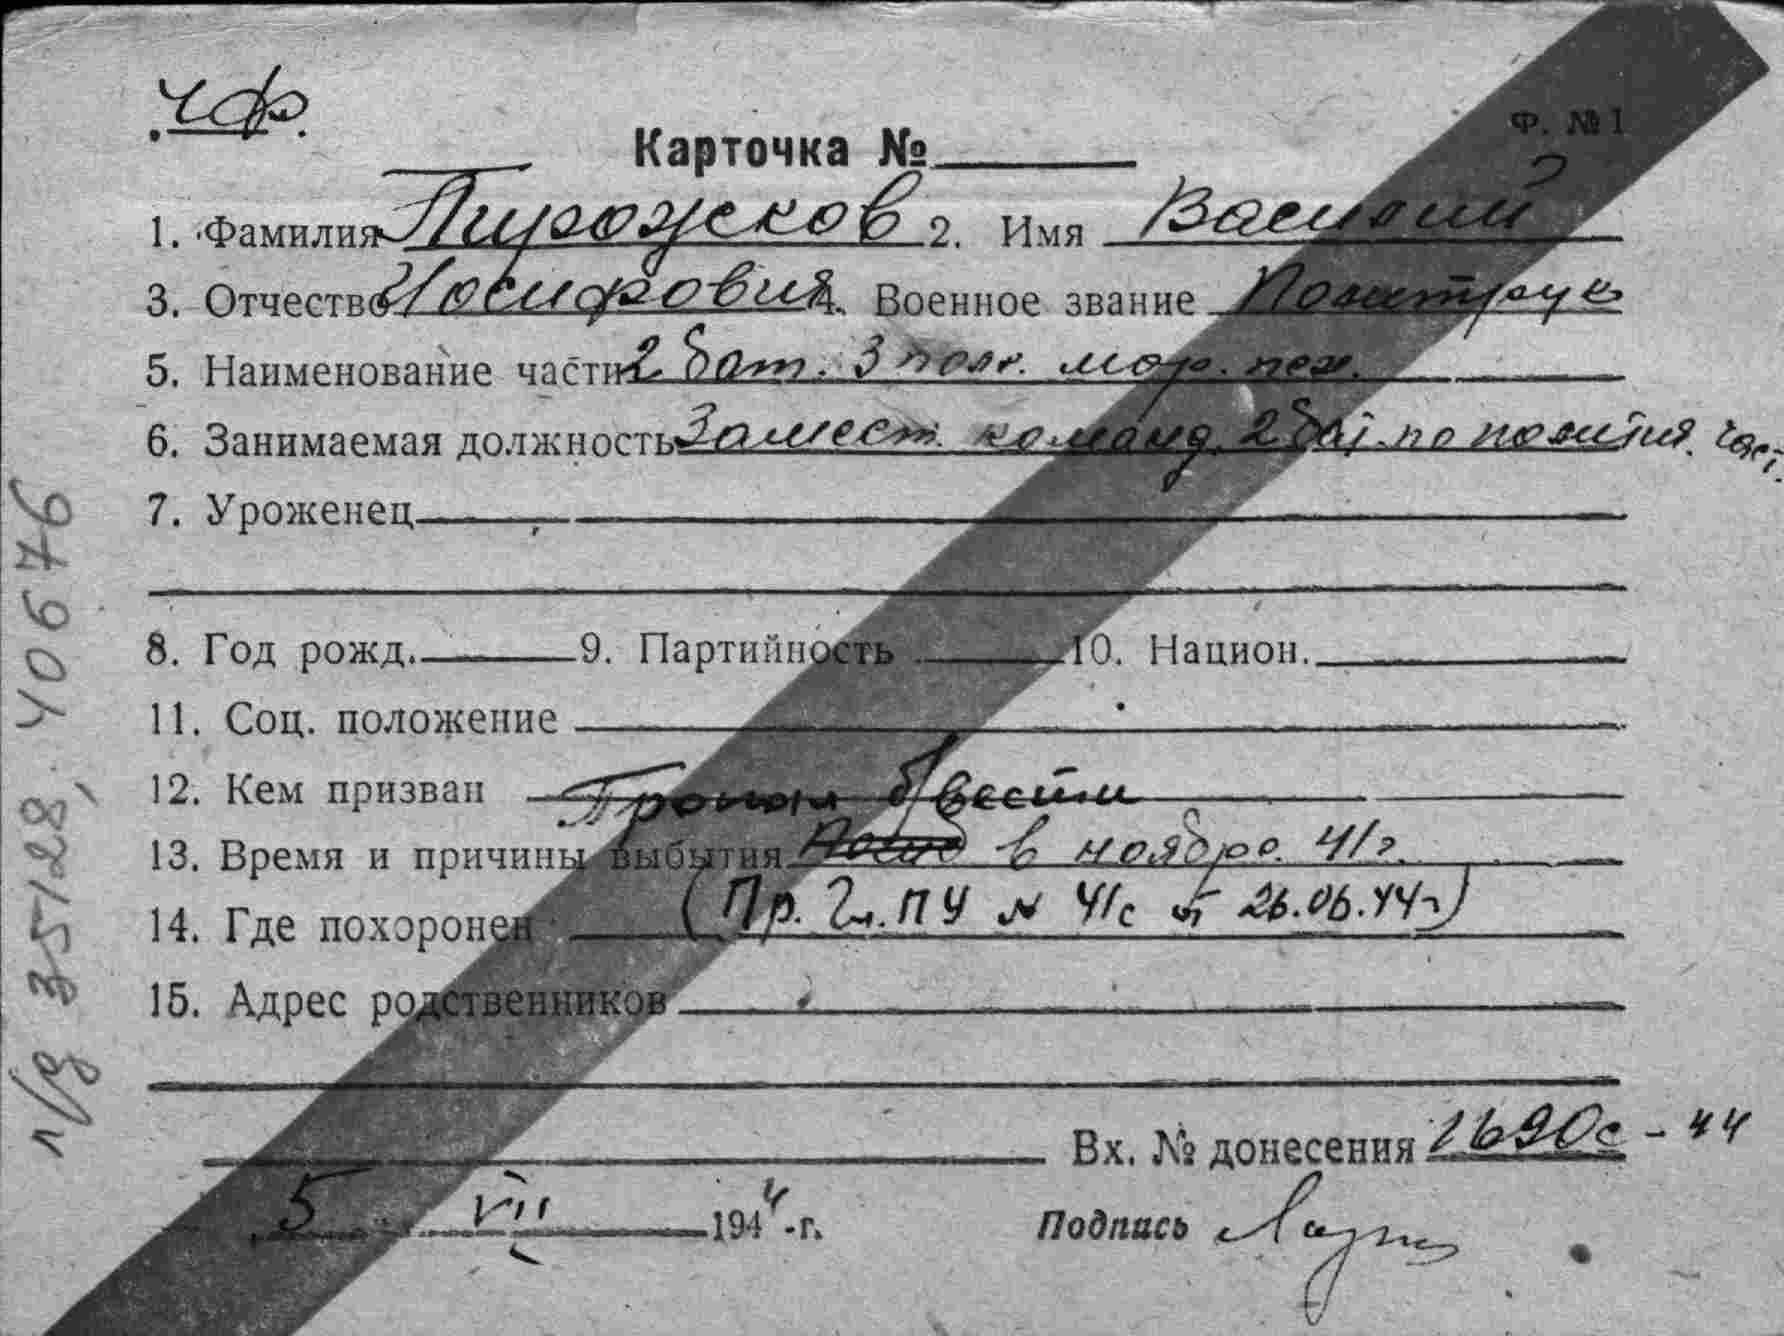 ЧФ.
Ф. №1
Карточка №
1. Фамилия Пирожсков 2. Имя Василий
3. Отчество Иосифович 4. Военное звание Политрук
5. Наименование части 2 бат. 3 полк. мор. пех.
6. Занимаемая должность Замест. команд. 2 бат. по политич. част.
7. Уроженец
8. Год рожд. 9. Партийность 10. Национ.
11. Соц. положение
12. Кем призван Пропал б/вести
13. Время и причины выбытия в ноябре. 41г.
(Пр. Гл. ПУ № 41с от 26.06.44г)
14. Где похоронен
15. Адрес родственников
Вх. № донесения 2690с - 44
5 VII 1944-г. Подпись
л/д 35128, 40676